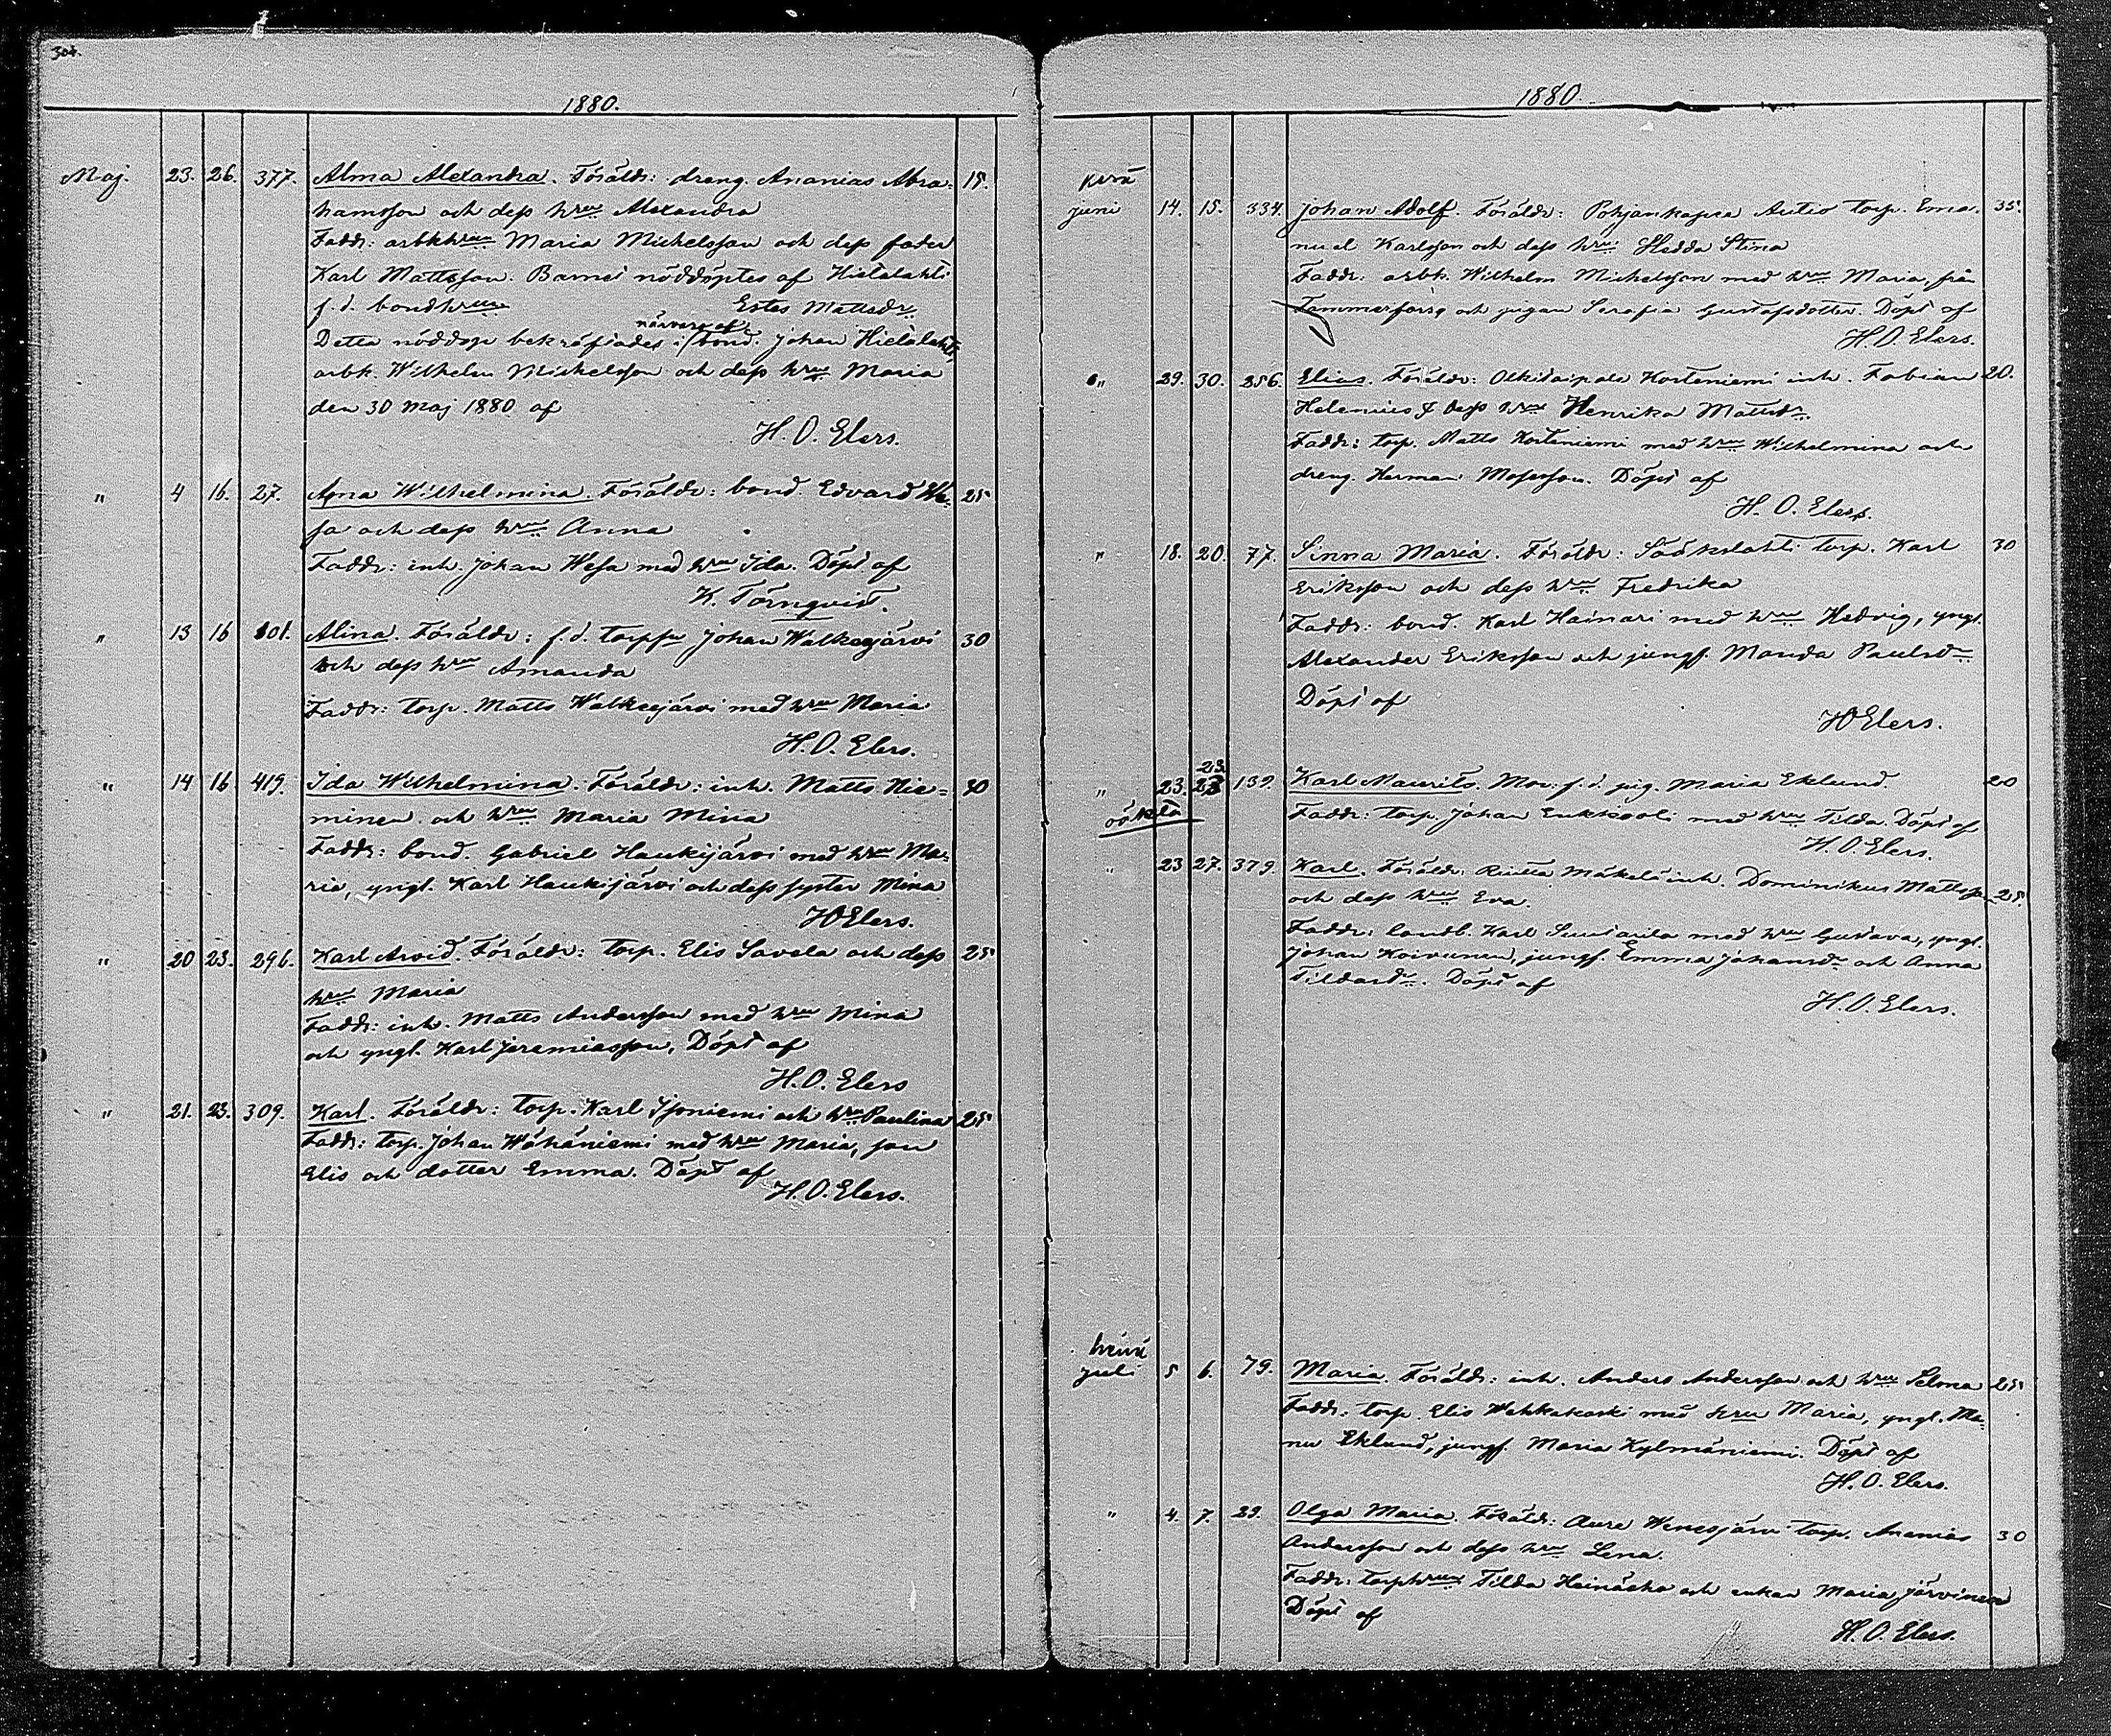 304.
1880.
Maj. 23. 26. 377. Alma Alexandra. Föräldr: dreng. Ananias Abra= 15.
hamsson och dess hru Alexandra
Faddr: arbkhrun Maria Michelsson och dess fader
Karl Mattsson. Barnet nöddöptes af Hietalahti
f.d. bondhrun Ester Mattsdr.
närvaro af
Detta nöddop bekräftades i bond. Johan Hietalahti,
arbk. Wilhelm Michelsson och dess hru Maria
den 30 Maj 1880 af
H. O. Elers.
" 4 16. 27. Anna Wilhelmina. Föräldr: bond. Edvard We= 25
sa och dess hru Anna
Faddr: inh. Johan Wesa med hru Ida. Döpt af
K. Törnqvist.
" 13 16 101. Alina. Föräldr: f.d. torpsn Johan Walkeejärvi 30
och dess hru Amanda
Faddr: torp. Matts Walkeejärvi med hru Maria
H. O. Elers.
" 14 16 419. Ida Wilhelmina. Föräldr: inh. Matts Nie= 30
minen och hru Maria Mina
Faddr: bond. Gabriel Haukijärvi med hru Ma=
ria, yngl. Karl Haukijärvi och dess syster Mina
HOElers.
" 20 23. 296. Karl Arvid. Föräldr: torp. Elis Savela och dess 25
hru Maria
Faddr: inh. Matts Andersson med hru Mina
och yngl. Karl Jeremiasson, Döpt af
H. O. Elers
" 21. 23. 309. Karl. Föräldr: torp. Karl Isoniemi och hru Paulina 25
Faddr: torp. Johan Wähäniemi med hru Maria, son
Elis och dotter Emma. Döpt af
H. O. Elers.
1880.
kesä
juni 14. 15. 334. Johan Adolf. Föräldr: Pohjankapea Autio torp. Ema= 35.
nuel Karlsson och dess hru Hedda Stina
Faddr: arbk. Wilhelm Michelsson med hru Maria, från
Tammerfors och pigan Serafia Gustafsdotter. Döpt af
H. O. Elers.
" 29. 30. 256. Elias. Föräldr: Kosteniemi inh. Fabian 20.
Helenius & dess hru Henrika Mattsdr.
Faddr: torp. Matts Kosteniemi med hru Wilhelmina och
dreng. Herman Mosesson. Döpt af
H. O. Elers.
" 18. 20. 77. Sinna Maria. Föräldr: Sääkslahti torp. Karl 30
Eriksson och dess hru Fredrika
Faddr: bond. Karl Hainari med hru Hedvig, yngl.
Alexander Eriksson och jungf. Manda Paulsdr
Döpt af
HOElers.
23.
" 23. 28 139. Karl Maurits. Mor: f.d. pig. Maria Eklund. 20
oäkta Faddr: torp. Johan Enkkooli med hru Tilda. Döpt af
H. O. Elers.
" 23 27. 379. Karl. Föräldr: Riutta Mäkelä inh. Dominikus Mattsson 25.
och dess hru Eva.
Faddr: landb. Karl med hru Gustava, yngl.
Johan Koivunen, jungf. Emma Johansdr och Anna
Döpt af
H. O. Elers.
heinä
juli 5 6. 79. Maria. Föräldr: inh. Anders Andersson och hru Selma 25
Faddr: torp. Elis Wehkakoski med hru Maria, yngl. Ma=
nu Eklund, jungf. Maria Kylmäniemi. Döpt af
H. O. Elers.
" 4. 7. 39. Olga Maria. Föräldr: Aure Wenesjärvi torp. Ananias 30
Andersson och dess hru Lena.
Faddr: torphrun Tilda Heinäaho och enkan Maria Järvinen
Döpt af
H. O. Elers.